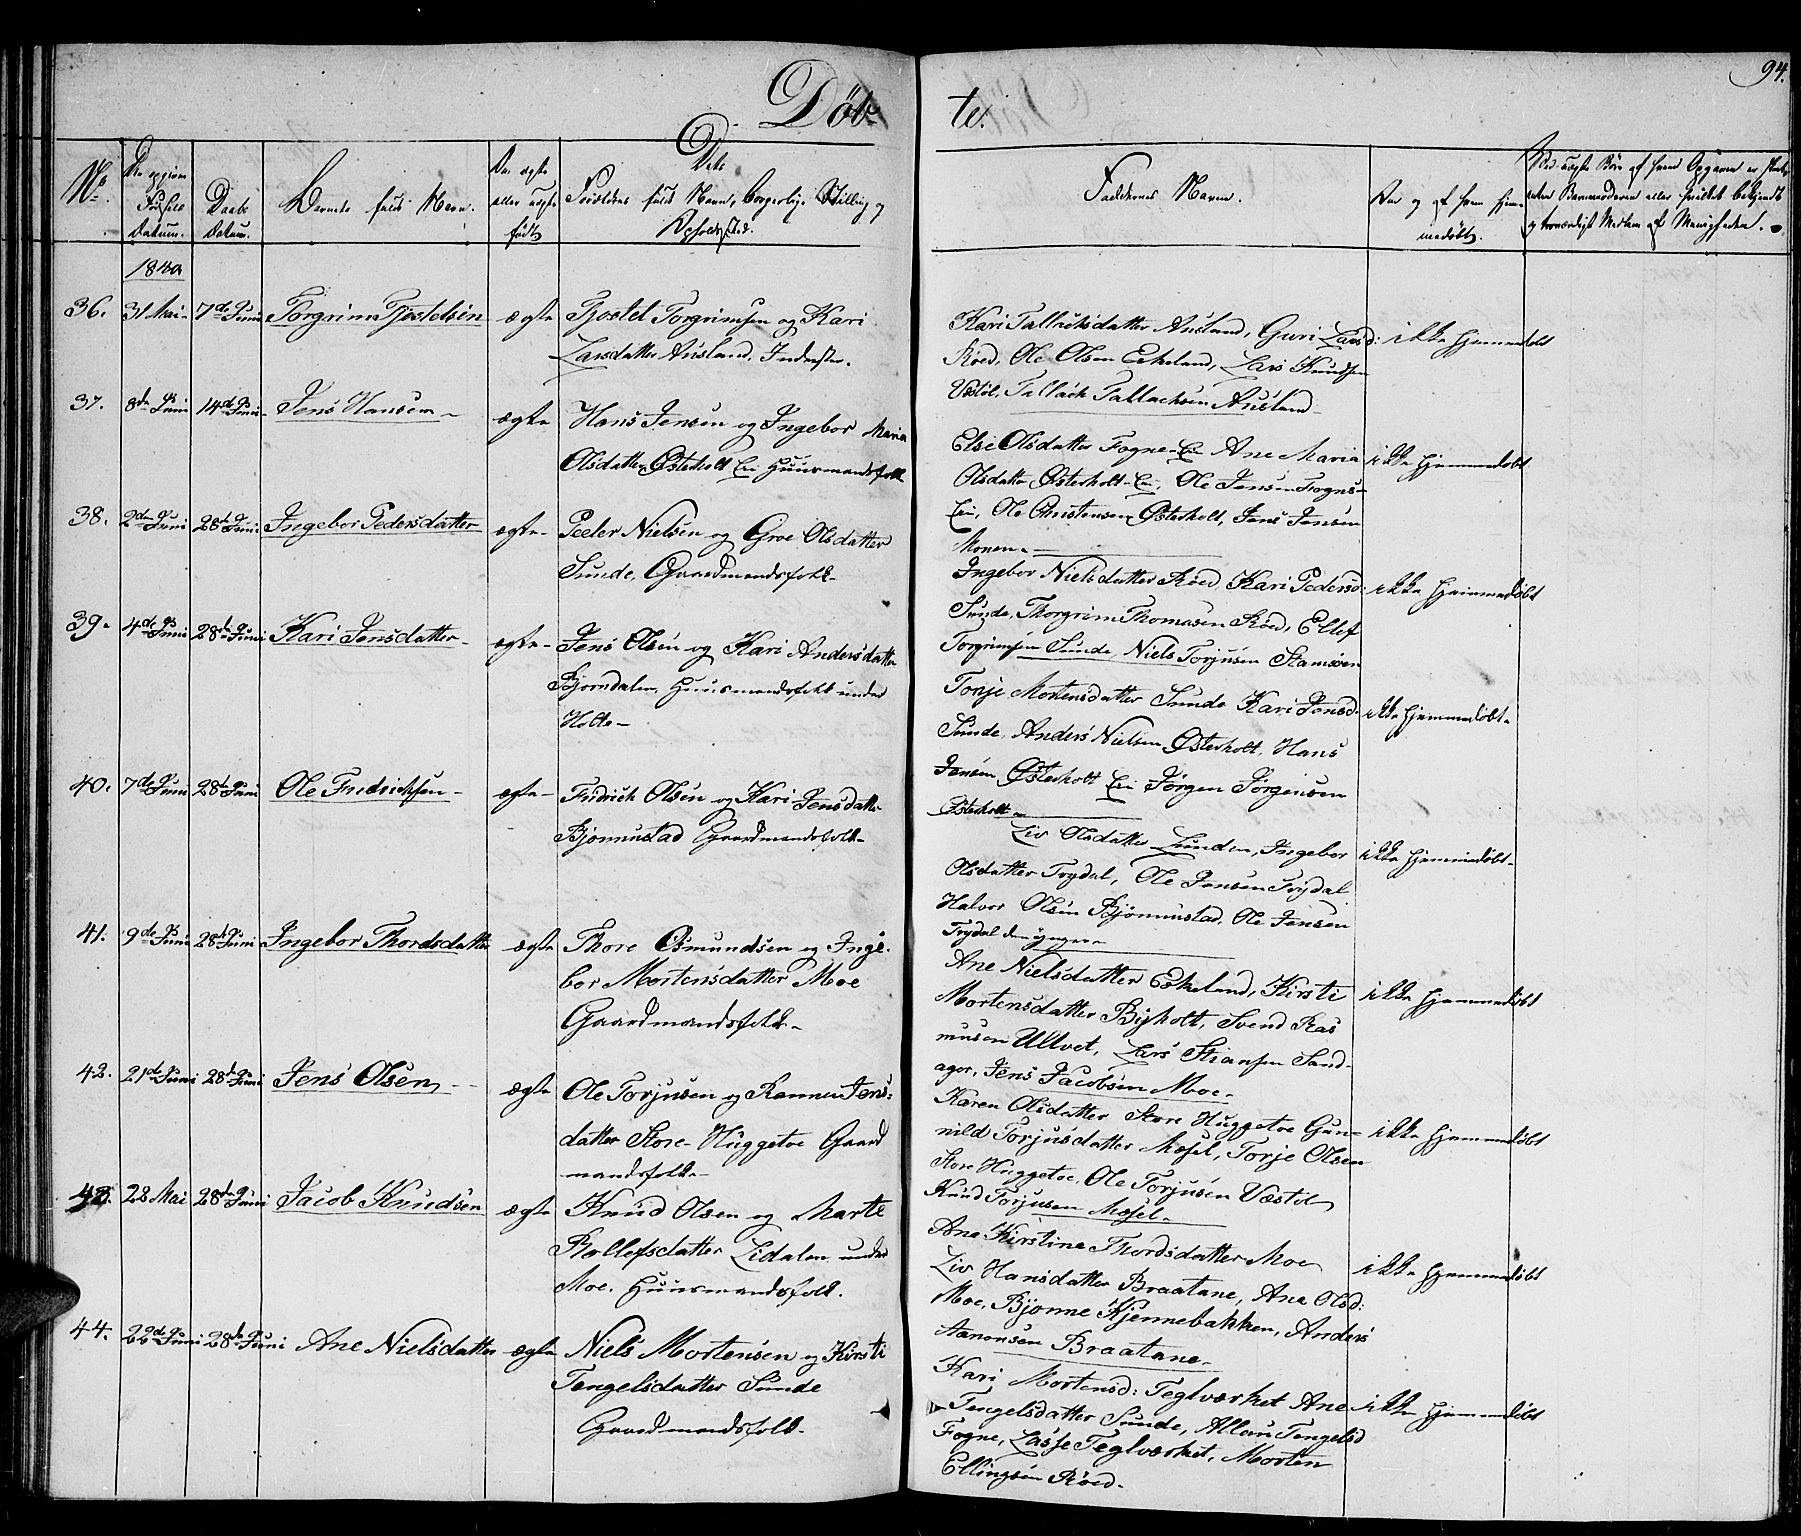 Døb-
te.
94.
No.
Den opgivne Fødsels Datum.
Daabs Datum.
Barnets fulde Navn.
Om ægte eller uægte født
Dets Forældres fulde Navn, borgerlige Stilling og Opholdssted.
Faddernes Navne.
Om og af hvem hjemmedøbt.
1840
36. 31 Mai- 7de Juni Torgrim Tjostelsen ægte Tjostel Torgrimsen og Kari
Larsdatter Ausland. Inderster.
Kari Tallacksdatter Ausland, Guri Larsd: ikke hjemmedøbt
Røed, Ole Olsen Eskeland, Lars Knudsen
Vestøl, Tallack Tallacksen Ausland-
37. 8de Juni 14de Juni- Jens Hansen- ægte Hans Jensen og Ingebor Maria
Olsdatter Østerholt Eie Huusmandsfolk
Else Olsdatter Fogne-Eie Ane Maria ikke hjemmedøbt
Olsdatter Østerholt-Eie, Ole Jensen Fogne-
Eie, Ole Christensen Østerholt, Jens Jensen
Monen-
38. 2den Juni 28de Juni Ingebor Pedersdatter ægte- Peeter Nielsen og Groe Olsdatter
Sunde, Gaardmandsfolk-
Ingebor Nielsdatter Røed, Kari Pedersd: ikke hjemmedøbt
Sunde, Thorgrim Thomasen Røed, Ellef
Torgrimsen Sunde, Niels Torjusen Stamsøen
39. 4de Juni 28de Juni Kari Jensdatter- ægte- Jens Olsen og Kari Andersdatter
Bjorndalen, Huusmandsfolk under
Holte-
Tonje Mortensdatter Sunde Kari Jensd- ikke hjemmedøbt-
Sunde, Anders Nielsen Østerholt, Hans
Jensen Østerholt Eie Jørgen Jørgensen
Østerholt-
40. 7de Juni 28de Juni Ole Fredrichsen- ægte- Fridrich Olsen og Kari Jensdatter
Bjonnustad Gaardmandsfolk-
Liv Olsdatter Lunden, Ingebor ikke hjemmedøbt-
Olsdatter Trydal, Ole Jensen Trydal
Halvor Olsen Bjönnustad, Ole Jensen
Trydal den yngere-
41. 9de Juni 28de Juni Ingebor Thordsdatter ægte Thore Osmundsen og Inge-
bor Mortensdatter Moe
Gaardmandsfolk-
Ane Nielsdatter Eskeland, Kirsti ikke hjemmedøbt
Mortensdatter Bijholt, Svend Ras
musen Ullvet, Lars Stiansen Sand-
ager, Jens Jacobsen Moe-
42. 21de Juni 28de Juni Jens Olsen- ægte Ole Torjusen og Rannei Jens:
datter Store- Huggetoe Gaard
mandsfolk-
Karen Olsdatter Store Huggetoe Gun- ikke hjemmedøbt
nild Torjusdatter Mosel, Torje Olsen
Store Huggetoe, Ole Torjusen Væstøl
Knud Torjusen Mosel-
43. 22 Mai 28de Juni Jacob Knudsen ægte Knud Olsen og Marte
Rollefsdatter Lidalen under
Moe. Huusmandsfolk.
Ane Kirstine Thordsdatter Moe ikke hjemmedøbt
Liv Hansdatter Braatane, Ane Olsd:
Moe, Bjonne Kjennebakken, Anders
Aanonsen Braatane-
44. 22de Juni 28de Juni Ane Nielsdatter ægte Niels Mortensen og Kirsti
Tengelsdatter Sunde
Gaardmandsfolk-
Kari Mortensd: Teglværket Ane ikke hjemmedøbt
Tengelsdatter Sunde, Allau Tengelsd
Fogne, Lasse Teglværket, Morten
Ellingsen Röed.